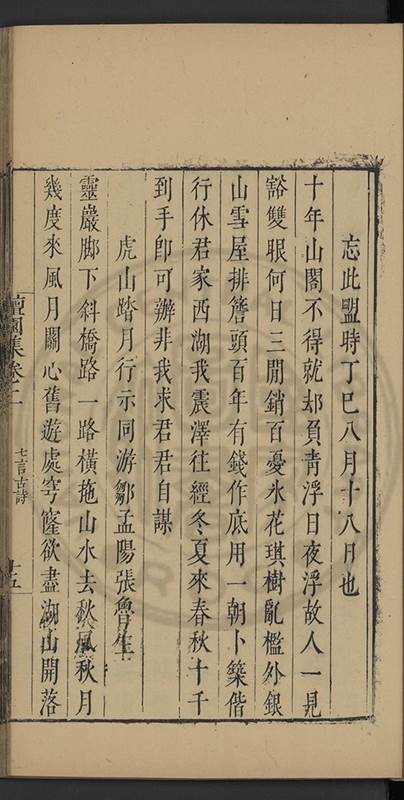 忘此盟時丁巳八月十八日也
十年山閣不得就却負青浮日夜浮故人一見
豁雙眼何日三閒銷百憂氷花琪樹亂檻外銀
山雪屋排簷頭百年有錢作底用一朝卜築偕
行休君家西湖我震澤往經冬夏來春秋十千
到手卽可辦非我求君君自謀
虎山踏月行示同游鄒孟陽張魯生
靈巖脚下斜橋路一路橫拖山水去秋風秋月
幾度來風月關心舊遊處穹窿欲盡湖山開落
檀園集卷二
七言古詩
十五